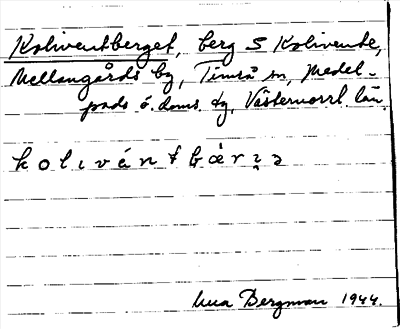 Koliventberget, berg S Kolivente,
Mellangårds by, Timrå sn, Medel-
pads ö. doms. tg, Västernorrl. län.
kolivén t bær
Bergman 1944.